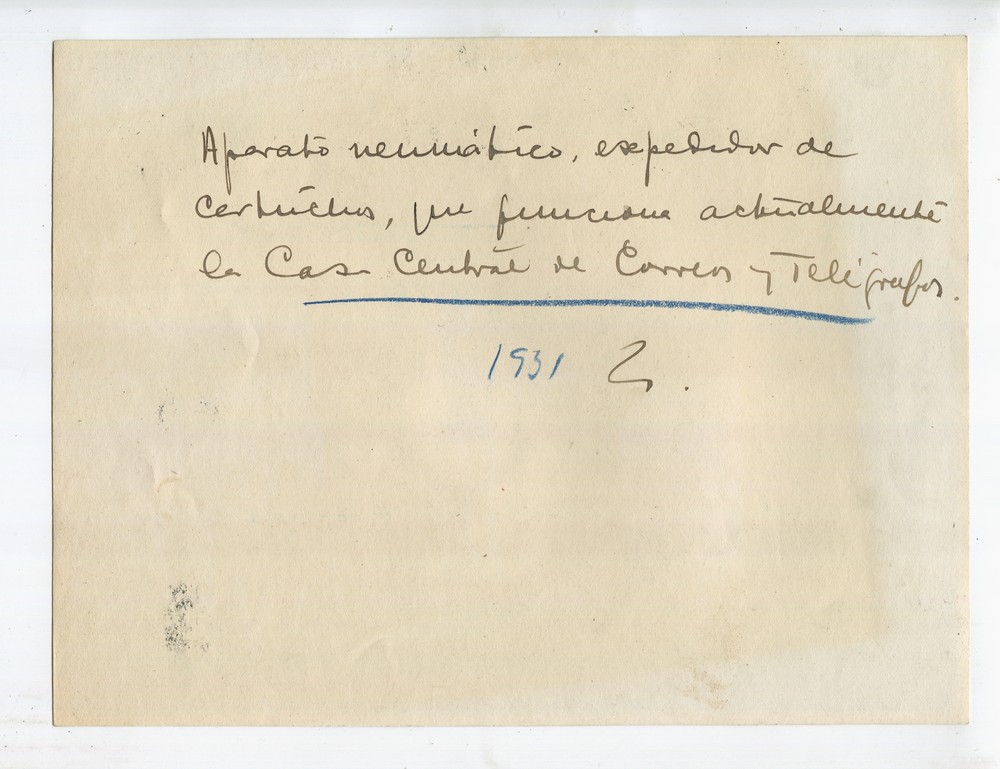 Aparato neumático, expedidor de
cartuchos, que funciona actualmente
la Casa Central de Correos y Telégrafos.
1931